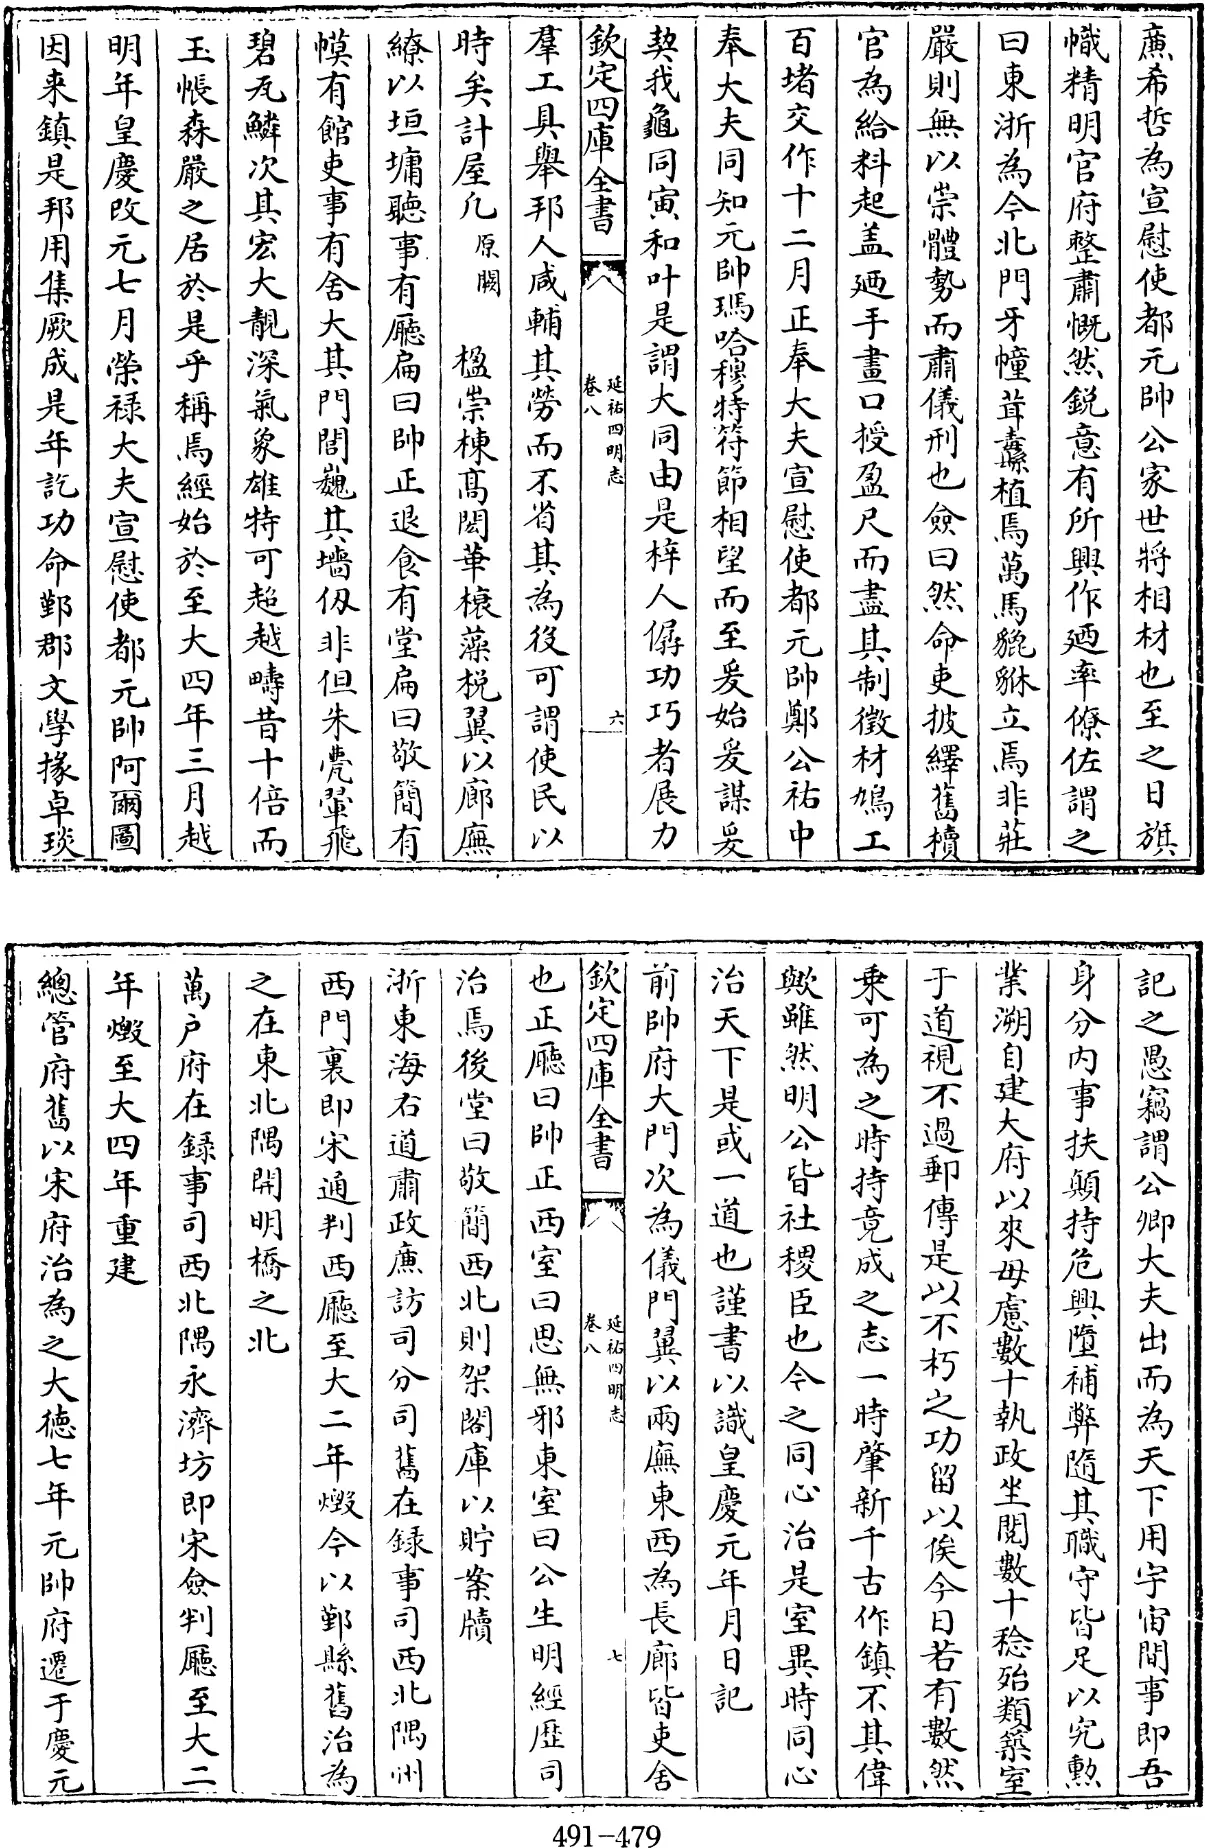 亷希哲為宣慰使都元帥公家世將相材也至之日旗
幟精明官府整肅慨然鋭意有所興作廼率僚佐謂之
曰東浙為今北門牙幢茸纛植焉萬馬貔貅立焉非莊
嚴則無以崇體勢而肅儀刑也僉曰然命吏披繹舊牘
官為給料起盖廼手畫口授盈尺而盡其制徵材鳩工
百堵交作十二月正奉大夫宣慰使都元帥鄭公祐中
奉大夫同知元帥瑪哈穆特符節相望而至爰始爰謀爰
契我龜同寅和叶是謂大同由是梓人僝功巧者展力
欽定四庫全書
延祐四明志
卷八
六
羣工具舉邦人咸輔其勞而不省其為役可謂使民以
時矣計屋凡 原闕 楹崇棟髙閎華榱藻梲翼以廊廡
繚以垣墉聽事有廳扁曰帥正退食有堂扁曰敬簡有
幙有館吏事有舍大其門閭巍其墻仭非但朱甍翬飛
碧瓦鱗次其宏大靚深氣象雄特可超越疇昔十倍而
玉帳森嚴之居於是乎稱焉經始於至大四年三月越
明年皇慶改元七月榮禄大夫宣慰使都元帥阿爾圖
因来鎮是邦用集厥成是年訖功命鄞郡文學掾卓琰
記之愚竊謂公卿大夫出而為天下用宇宙間事即吾
身分内事扶顛持危興墮補弊隨其職守皆足以究勲
業溯自建大府以來毋慮數十執政坐閲數十稔殆類築室
于道視不過郵傳是以不朽之功留以俟今日若有數然
乘可為之時持竟成之志一時肇新千古作鎮不其偉
歟雖然明公皆社稷臣也今之同心治是室異時同心
治天下是或一道也謹書以識皇慶元年月日記
前帥府大門次為儀門翼以兩廡東西為長廊皆吏舍
欽定四庫全書
延祐四明志
卷八
七
也正廳曰帥正西室曰思無邪東室曰公生明經歴司
治焉後堂曰敬簡西北則架閣庫以貯案牘
浙東海右道肅政亷訪司分司舊在録事司西北隅州
西門裏即宋通判西廳至大二年燬今以鄞縣舊治為
之在東北隅開明橋之北
萬户府在録事司西北隅永濟坊即宋僉判廳至大二
年燬至大四年重建
總管府舊以宋府治為之大徳七年元帥府遷于慶元
491-479